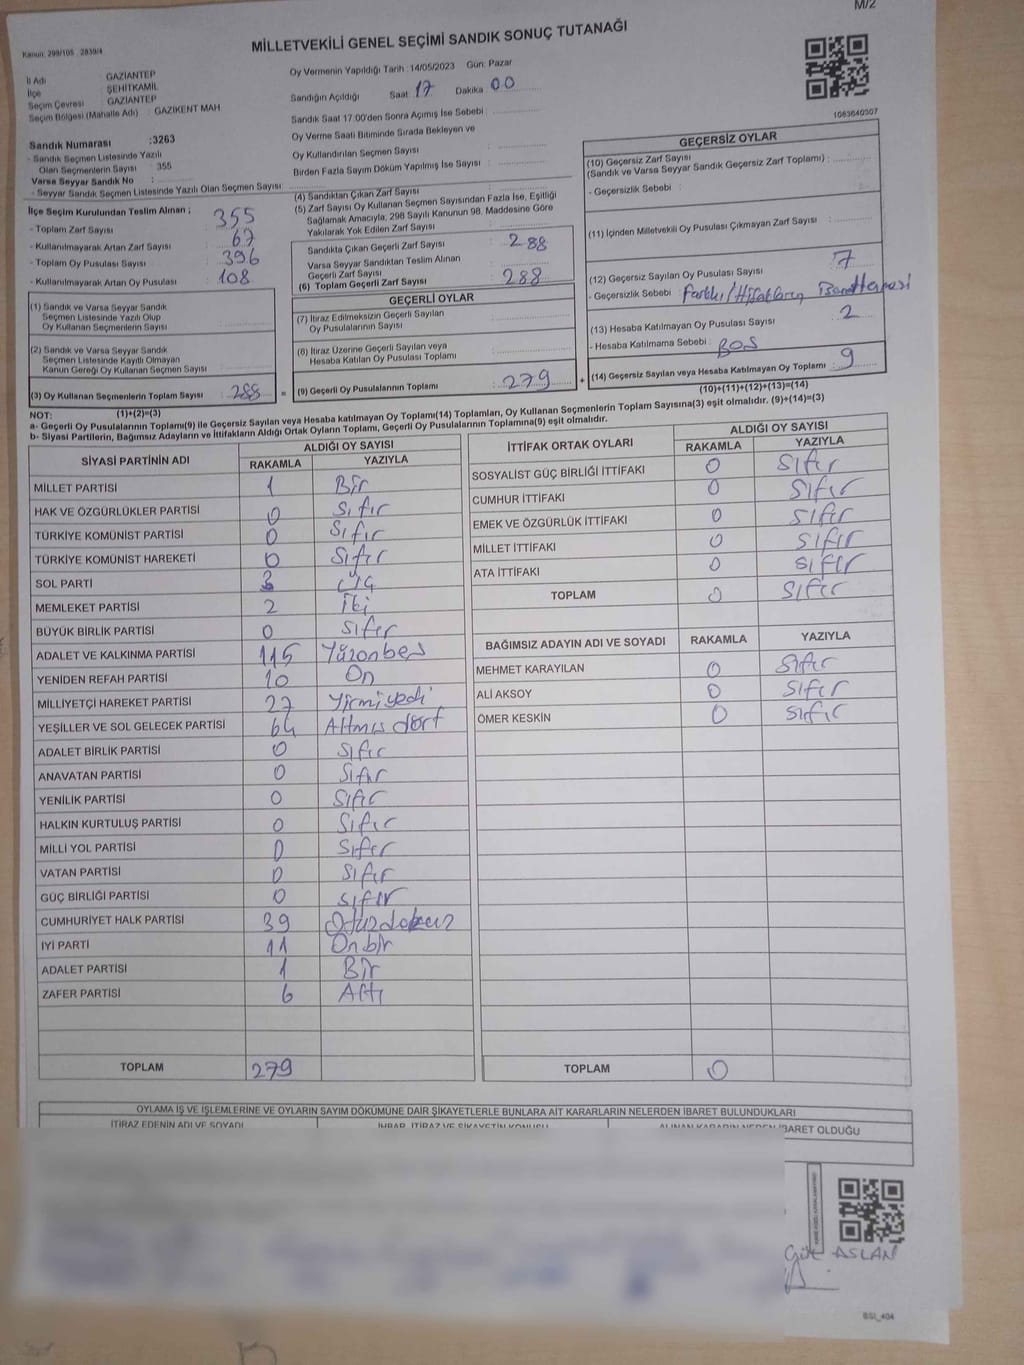 M/2
Kanun: 298/105 , 2839/4
MİLLETVEKİLİ GENEL SEÇİMİ SANDIK SONUÇ TUTANAĞI
İl Adı : GAZİANTEP
İlçe : ŞEHİTKAMİL
Seçim Çevresi : GAZİANTEP
Seçim Bölgesi (Mahalle Adı) : GAZİKENT MAH
Sandık Numarası :3263
- Sandık Seçmen Listesinde Yazılı
Olan Seçmenlerin Sayısı : 355
Varsa Seyyar Sandık No :
- Seyyar Sandık Seçmen Listesinde Yazılı Olan Seçmen Sayısı :
Oy Vermenin Yapıldığı Tarih :14/05/2023 Gün: Pazar
Sandığın Açıldığı Saat 17 Dakika 00
Sandık Saat 17.00'den Sonra Açılmış İse Sebebi :
Oy Verme Saati Bitiminde Sırada Bekleyen ve
Oy Kullandırılan Seçmen Sayısı :
Birden Fazla Sayım Döküm Yapılmış İse Sayısı :
1083640307
İlçe Seçim Kurulundan Teslim Alınan ;
- Toplam Zarf Sayısı : 355
- Kullanılmayarak Artan Zarf Sayısı : 67
- Toplam Oy Pusulası Sayısı : 396
- Kullanılmayarak Artan Oy Pusulası : 108
(1) Sandık ve Varsa Seyyar Sandık
Seçmen Listesinde Yazılı Olup
Oy Kullanan Seçmenlerin Sayısı :
(2) Sandık ve Varsa Seyyar Sandık
Seçmen Listesinde Kayıtlı Olmayan
Kanun Gereği Oy Kullanan Seçmen Sayısı :
(3) Oy Kullanan Seçmenlerin Toplam Sayısı : 288 =
(4) Sandıktan Çıkan Zarf Sayısı :
(5) Zarf Sayısı Oy Kullanan Seçmen Sayısından Fazla İse, Eşitliği
Sağlamak Amacıyla, 298 Sayılı Kanunun 98. Maddesine Göre
Yakılarak Yok Edilen Zarf Sayısı :
Sandıkta Çıkan Geçerli Zarf Sayısı : 288
Varsa Seyyar Sandıktan Teslim Alınan
Geçerli Zarf Sayısı :
(6) Toplam Geçerli Zarf Sayısı : 288
GEÇERLİ OYLAR
(7) İtiraz Edilmeksizin Geçerli Sayılan
Oy Pusulalarının Sayısı :
(8) İtiraz Üzerine Geçerli Sayılan veya
Hesaba Katılan Oy Pusulası Toplamı :
(9) Geçerli Oy Pusulalarının Toplamı : 279 +
GEÇERSİZ OYLAR
(10) Geçersiz Zarf Sayısı
(Sandık ve Varsa Seyyar Sandık Geçersiz Zarf Toplamı) :
- Geçersizlik Sebebi :
(11) İçinden Milletvekili Oy Pusulası Çıkmayan Zarf Sayısı :
(12) Geçersiz Sayılan Oy Pusulası Sayısı : 7
- Geçersizlik Sebebi : Farklı
(13) Hesaba Katılmayan Oy Pusulası Sayısı : 2
- Hesaba Katılmama Sebebi : BOŞ
(14) Geçersiz Sayılan veya Hesaba Katılmayan Oy Toplamı : 9
(10)+(11)+(12)+(13)=(14)
NOT: (1)+(2)=(3)
a- Geçerli Oy Pusulalarının Toplamı(9) ile Geçersiz Sayılan veya Hesaba katılmayan Oy Toplamı(14) Toplamları, Oy Kullanan Seçmenlerin Toplam Sayısına(3) eşit olmalıdır. (9)+(14)=(3)
b- Siyasi Partilerin, Bağımsız Adayların ve İttifakların Aldığı Ortak Oyların Toplamı, Geçerli Oy Pusulalarının Toplamına(9) eşit olmalıdır.
SİYASİ PARTİNİN ADI ALDIĞI OY SAYISI
RAKAMLA YAZIYLA
MİLLET PARTİSİ 1 Bir
HAK VE ÖZGÜRLÜKLER PARTİSİ 0 Sıfır
TÜRKİYE KOMÜNİST PARTİSİ 0 Sıfır
TÜRKİYE KOMÜNİST HAREKETİ 0 Sıfır
SOL PARTİ 3 Üç
MEMLEKET PARTİSİ 2 İki
BÜYÜK BİRLİK PARTİSİ 0 Sıfır
ADALET VE KALKINMA PARTİSİ 115 Yüzonbeş
YENİDEN REFAH PARTİSİ 10 On
MİLLİYETÇİ HAREKET PARTİSİ 27 Yirmiyedi
YEŞİLLER VE SOL GELECEK PARTİSİ 64 Altmış dört
ADALET BİRLİK PARTİSİ 0 Sıfır
ANAVATAN PARTİSİ 0 Sıfır
YENİLİK PARTİSİ 0 Sıfır
HALKIN KURTULUŞ PARTİSİ 0 Sıfır
MİLLİ YOL PARTİSİ 0 Sıfır
VATAN PARTİSİ 0 Sıfır
GÜÇ BİRLİĞİ PARTİSİ 0 Sıfır
CUMHURİYET HALK PARTİSİ 39 Otuzdokuz
İYİ PARTİ 11 Onbir
ADALET PARTİSİ 1 Bir
ZAFER PARTİSİ 6 Altı
TOPLAM 279
İTTİFAK ORTAK OYLARI ALDIĞI OY SAYISI
RAKAMLA YAZIYLA
SOSYALİST GÜÇ BİRLİĞİ İTTİFAKI 0 Sıfır
CUMHUR İTTİFAKI 0 Sıfır
EMEK VE ÖZGÜRLÜK İTTİFAKI 0 Sıfır
MİLLET İTTİFAKI 0 Sıfır
ATA İTTİFAKI 0 Sıfır
TOPLAM 0 Sıfır
BAĞIMSIZ ADAYIN ADI VE SOYADI RAKAMLA YAZIYLA
MEHMET KARAYILAN 0 Sıfır
ALİ AKSOY 0 Sıfır
ÖMER KESKİN 0 Sıfır
TOPLAM 0
OYLAMA İŞ VE İŞLEMLERİNE VE OYLARIN SAYIM DÖKÜMÜNE DAİR ŞİKAYETLERLE BUNLARA AİT KARARLARIN NELERDEN İBARET BULUNDUKLARI
İTİRAZ EDENİN ADI VE SOYADI İHBAR, İTİRAZ VE ŞİKAYETİN KONUSU ALINAN KARARIN NEDEN İBARET OLDUĞU
ASLAN
BSI_404